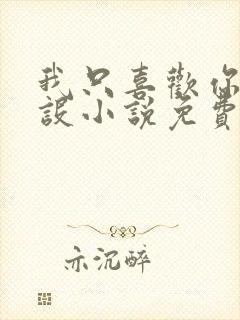 我只喜歡你
設小說免費
亦沉醉